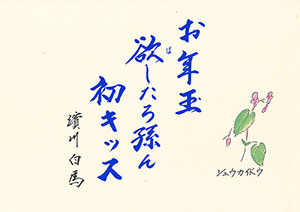 お年玉
欲したろ孫ん
ほ
初キッス
濱川 白馬
シュウカイドウ